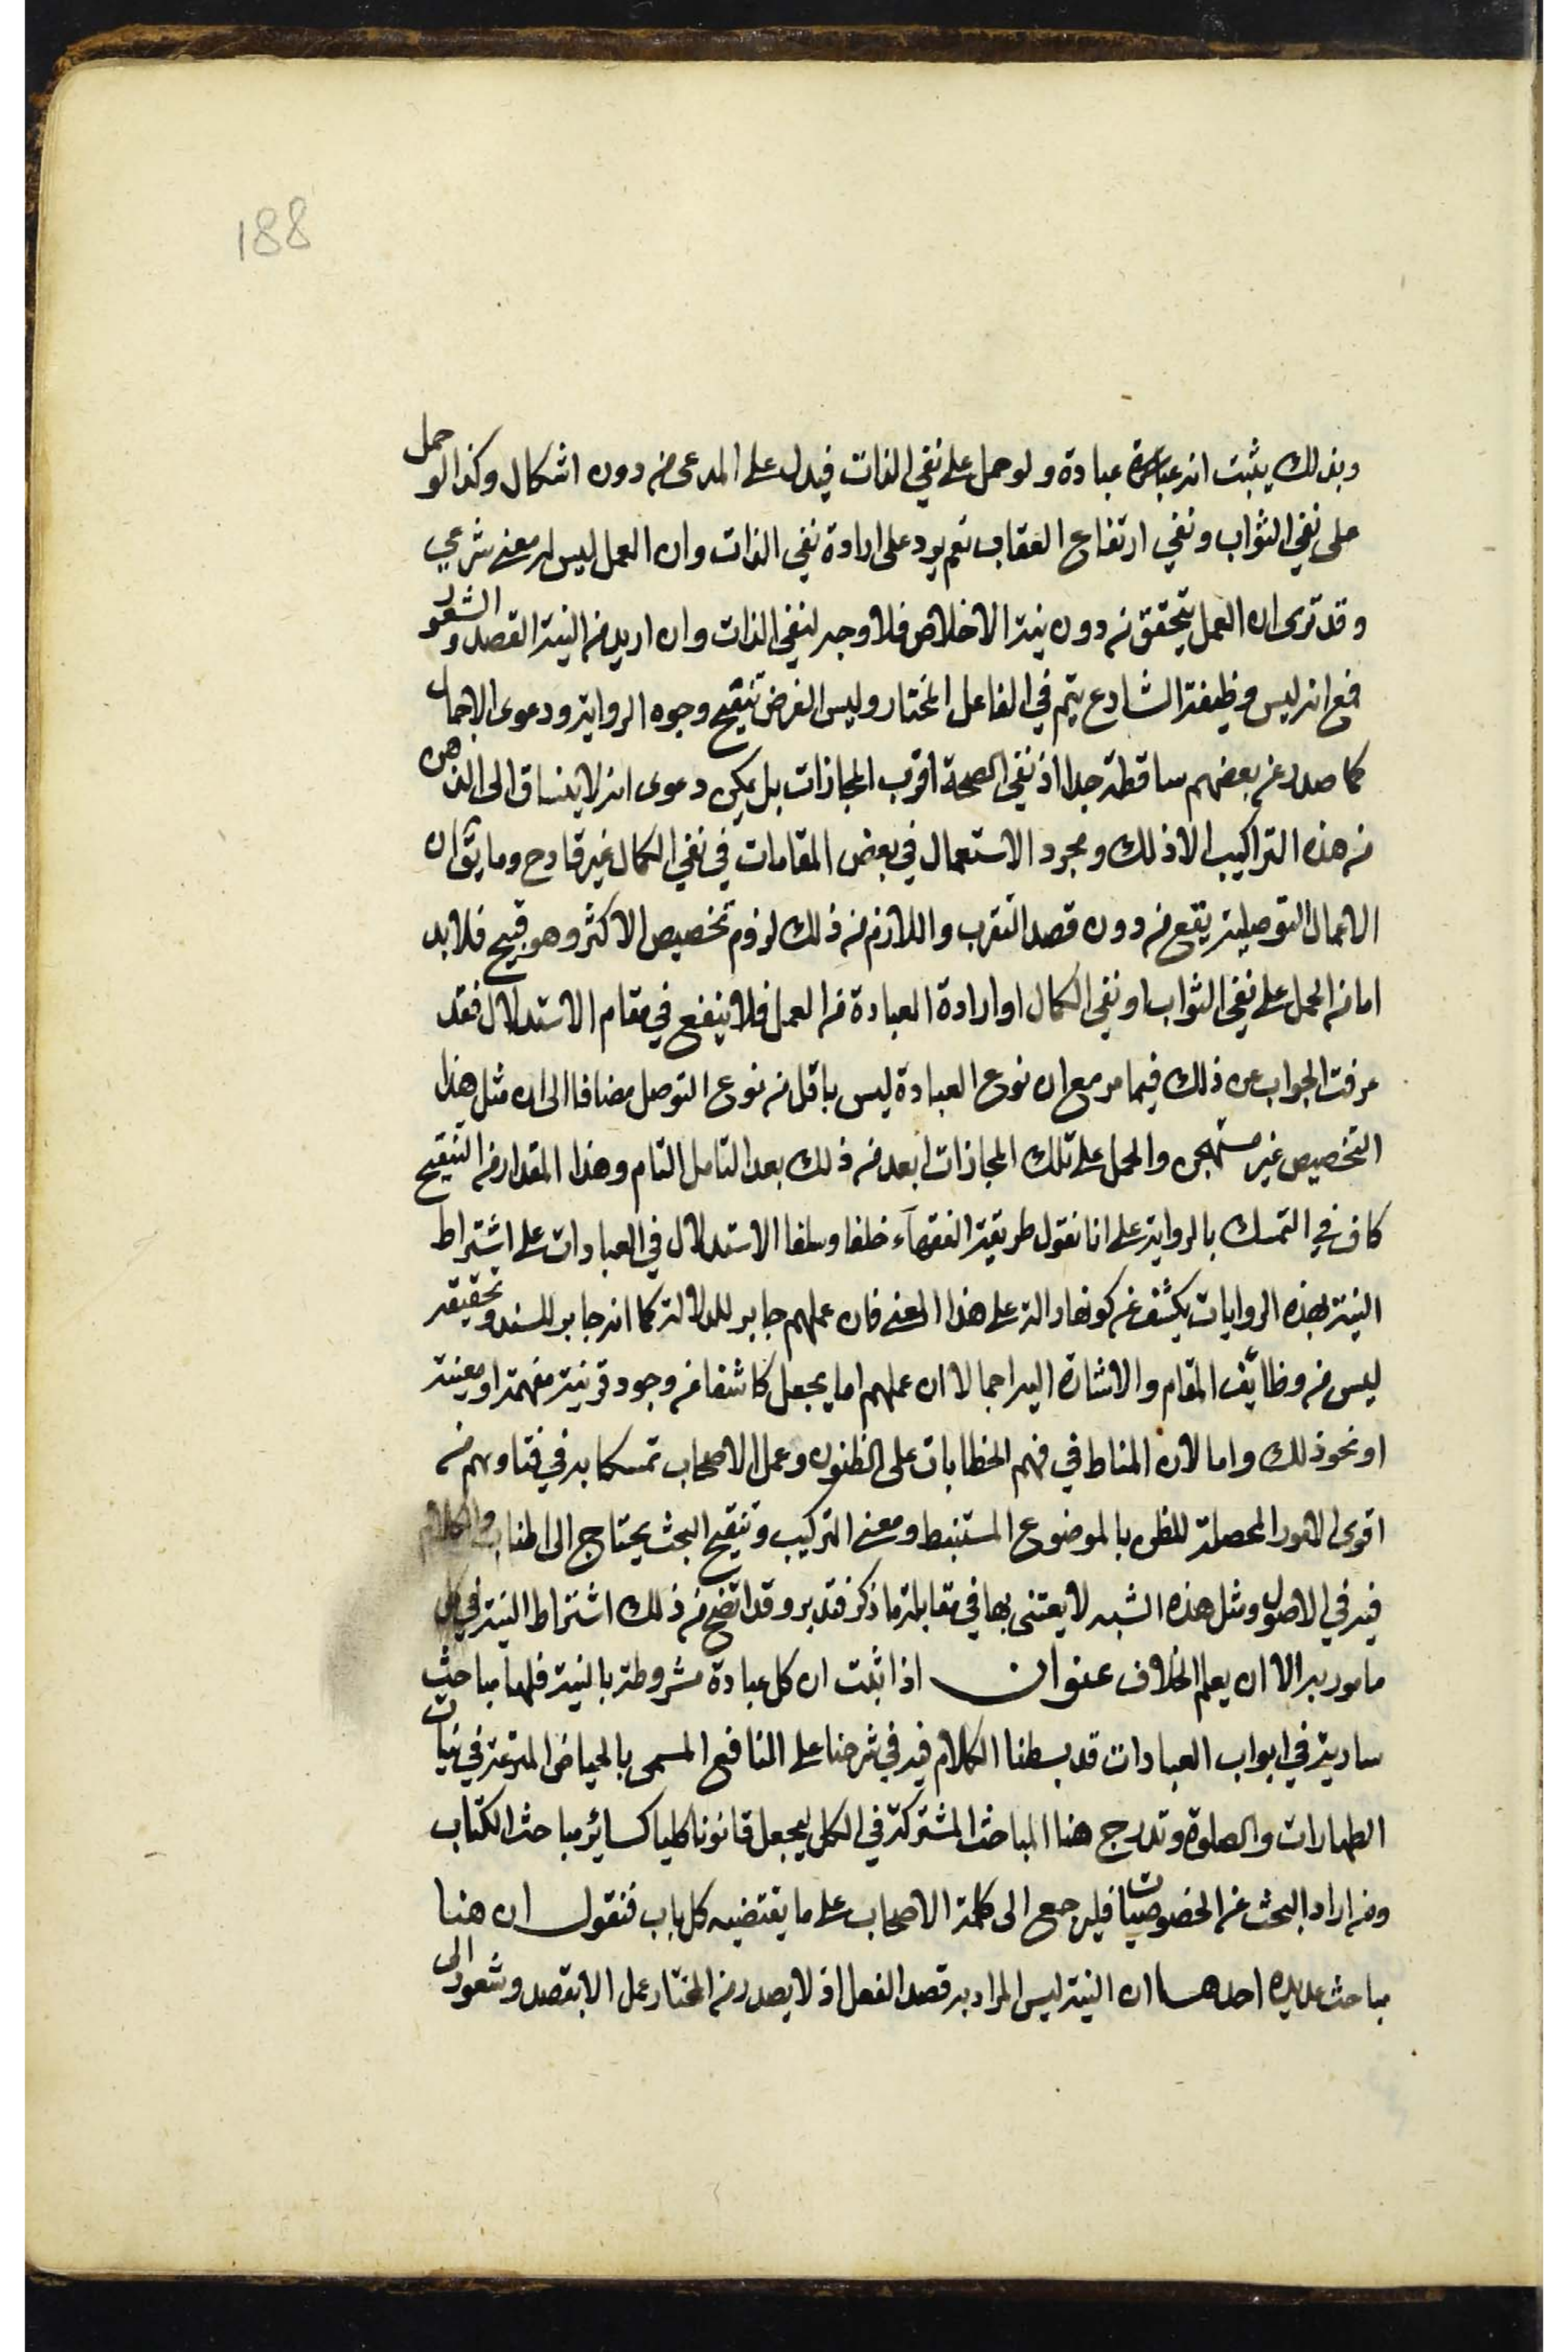 188
وبذلك يثبت انه عبادة ولو حمل على نفي الذات فيدل على المدعى من دون اشكال وكذا لو حمل
على نفي الثواب ونفي ارتفاع العقاب نعم يرد على ارادة نفي الذات وان العمل ليس له معنى شرعي
وقد ترى ان العمل يتحقق من دون نية الاخلاص فلا وجه لنفي الذات وان اريد من النية القصد والشعور
فمع انه ليس وظيفة الشارع يتم في الفاعل المختار وليس الغرض تنقيح وجوه الرواية ودعوى الاجمال
كما صدر عن بعضهم ساقطة جدا اذ نفي الصحة اقرب المجازات بل يمكن دعوى انه لا ينساق الى الذهن
من هذه التراكيب الا ذلك ومجرد الاستعمال في بعض المقامات في نفي الكمال غير قادح وما يق ان
الاعمال التوصلية يقع من دون قصد التقرب واللازم من ذلك لزوم تخصيص الاكثر وهو قبيح فلا بد
اما من الحمل على نفي الثواب او نفي الكمال او ارادة العبادة من العمل فلا ينفع في مقام الاستدلال فقد
عرفت الجواب عن ذلك فيما مر مع ان نوع العبادة ليس باقل من نوع التوصل مضافا الى ان مثل هذا
التخصيص غير مستهجن والحمل على تلك المجازات ابعد من ذلك بعد التامل التام وهذا المقدار من التنقيح
كاف في التمسك بالرواية على انا نقول طريقة الفقهآء خلفا وسلفا الاستدلال في العبادات على اشتراط
النية بهذه الروايات يكشف عن كونها دالة على هذا المعنى فان عملهم جابر للدلالة كما انه جابر للسند وتحقيقه
ليس من وظائف المقام والاشارة اليه اجمالا ان عملهم اما يجعل كاشفا عن وجود قرينة مفهمة او معينة
او نحو ذلك واما لان المناط في فهم الخطابات على الظنون وعمل الاصحاب تمسكا به في فتاويهم من
اقوى الامور المحصلة للظن بالموضوع المستنبط ومعنى التركيب وتنقيح البحث يحتاج الى اطناب والكلام
فيه في الاصول ومثل هذه الشبه لا يعتنى بها في مقابلة ما ذكر فتدبر وقد اتضح من ذلك اشتراط النية في كل
مامور به الا ان يعلم الخلاف عنوان اذا ثبت ان كل عبادة مشروطة بالنية فلها مباحث
سارية في ابواب العبادات قد بسطنا الكلام فيه في شرحنا على النافع المسمى بالحياض المترعة في نيات
الطهارات والصلوة وندرج هنا المباحث المشتركة في الكل ليجعل قانونا كليا كسائر مباحث الكتاب
ومن اراد البحث عن الخصوصيات فليرجع الى كلمة الاصحاب على ما يقتضيه كل باب فنقول ان هنا
مباحث عديدة احدها ان النية ليس المراد به قصد الفعل اذ لا يصدر من المختار عمل الا بقصد وشعور الى